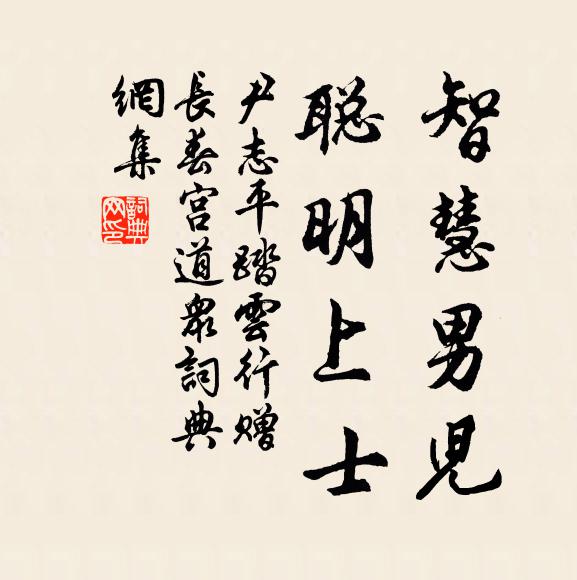 智慧男児
聡明上士
尹志平踏雲行贈
長春宮道眾詞典
網集
詞典
网印